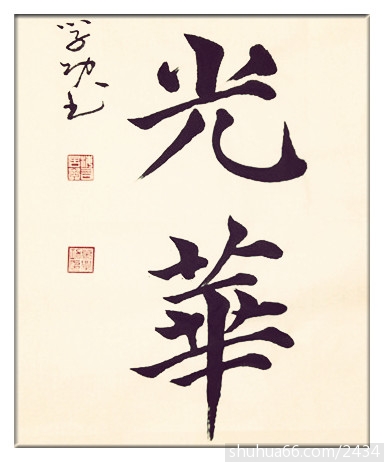 光華
学功书
shuhua66.com/2434